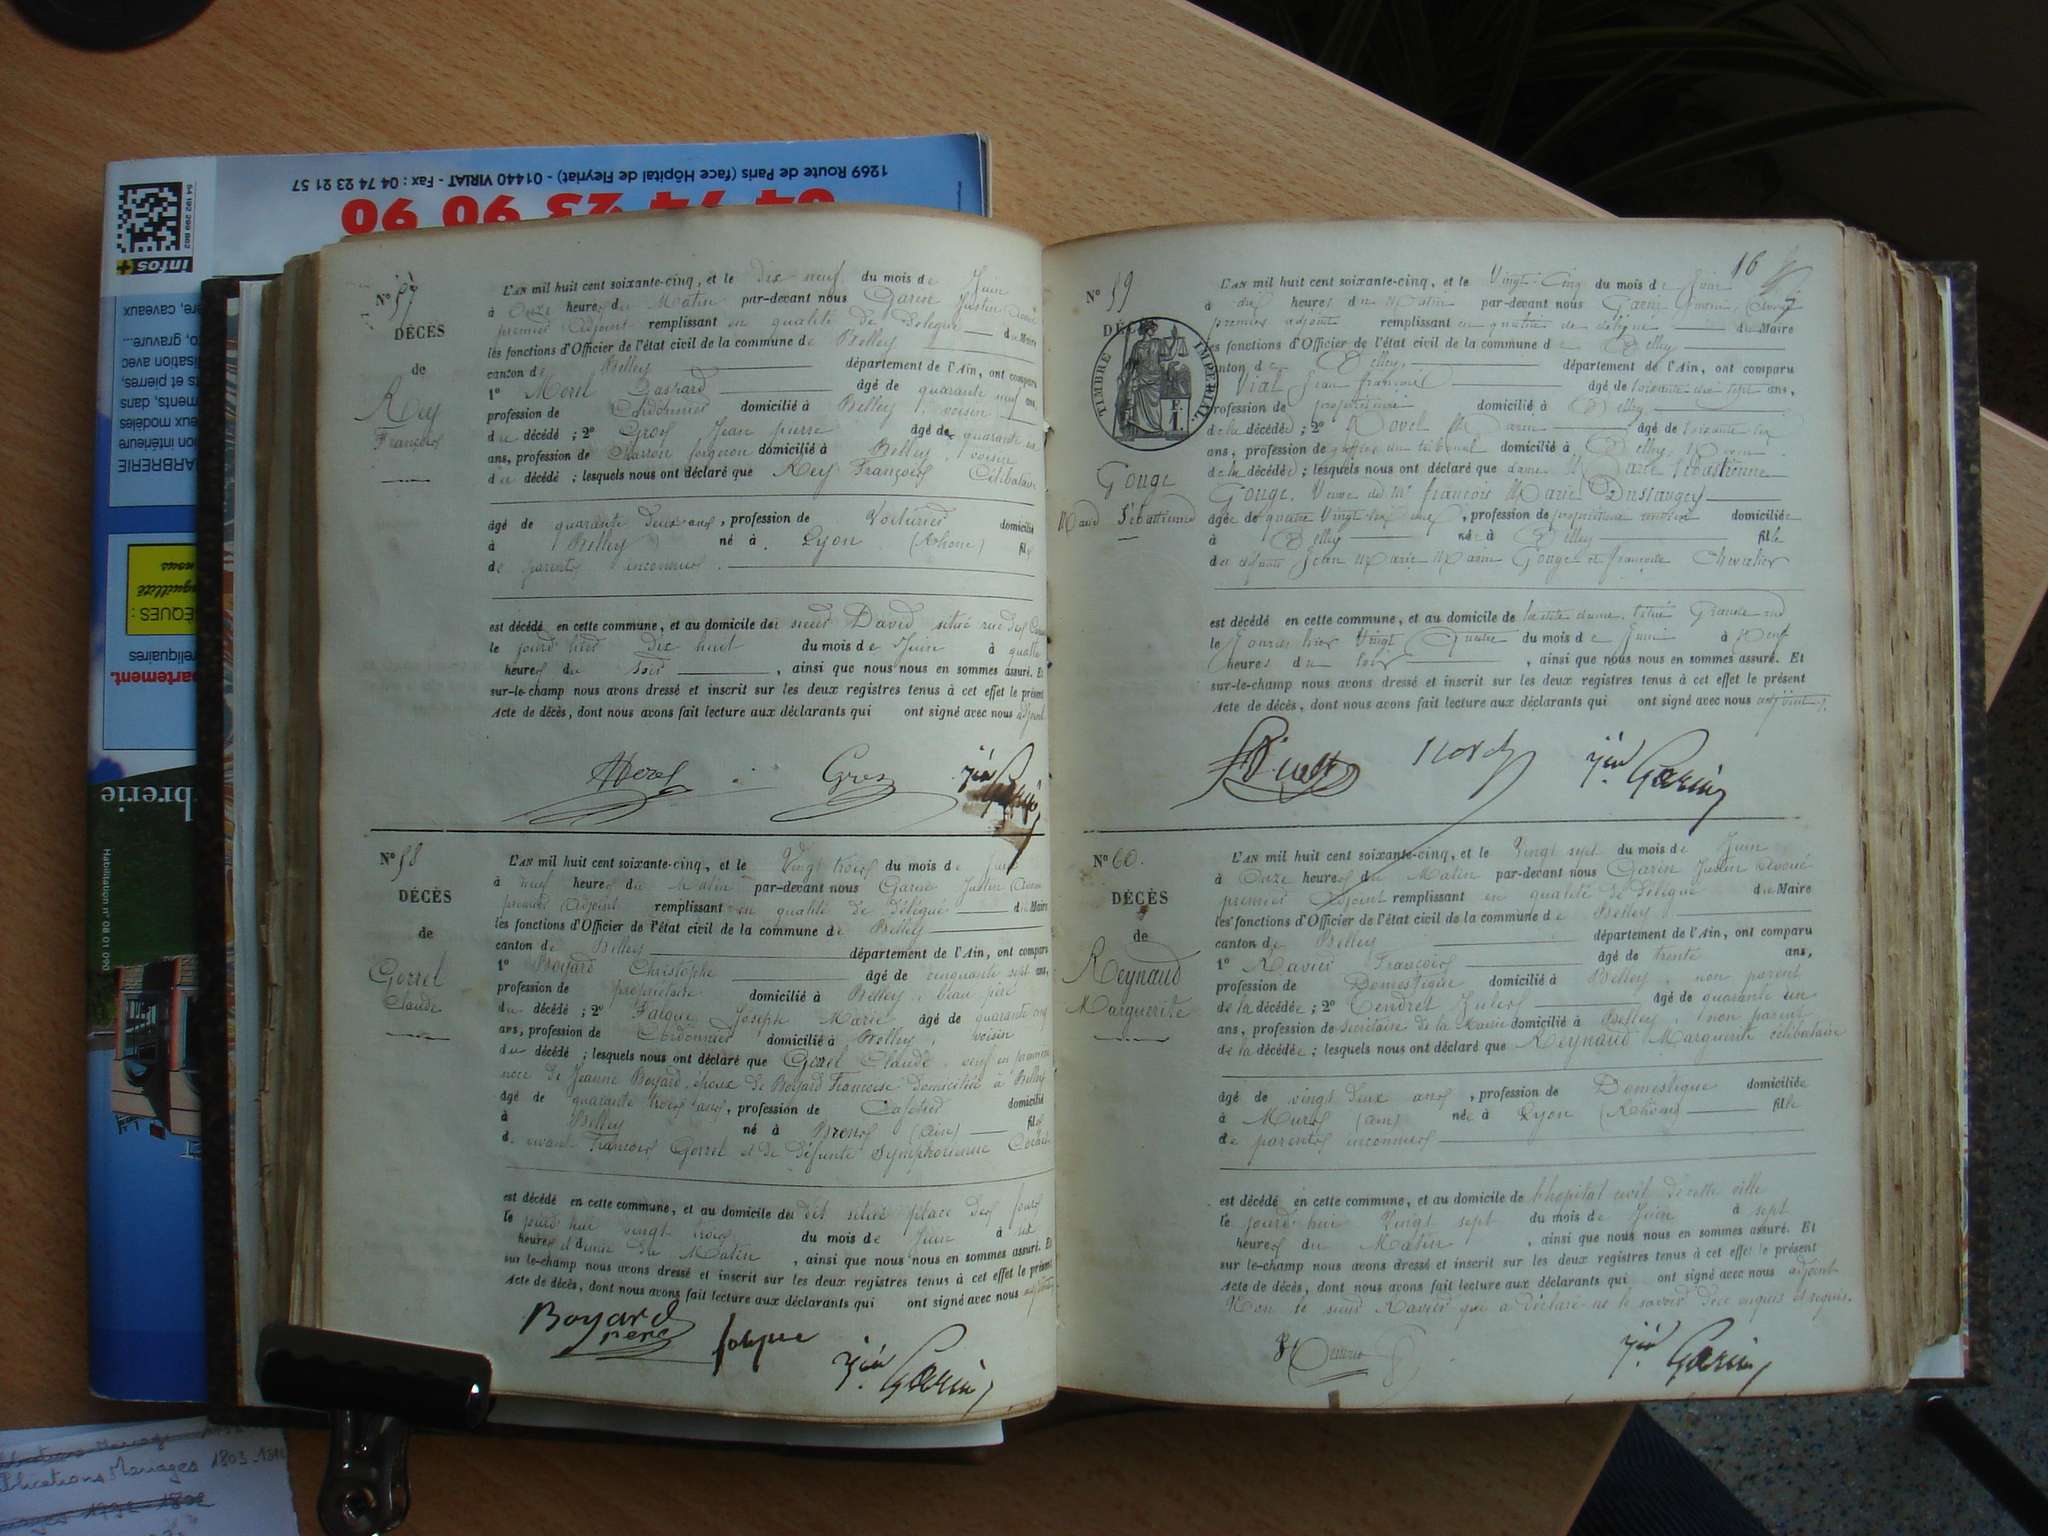 1269 Route de Paris (face Hôpital de Fleyriat) - 01440 VIRIAT - Fax : 04 74 23 21 57
04 74 23 90 90
infos +
N° 57
DÉCÈS
de
Rey
François
L'AN mil huit cent soixante-cinq, et le dix neuf du mois de Juin
à Onze heures du Matin par-devant nous Garin Justin Avoué
premier Adjoint remplissant en qualité de Délégué du Maire
les fonctions d'Officier de l'état civil de la commune de Belley
canton de Belley département de l'Ain, ont comparu
1° Morel Gaspard âgé de quarante neuf ans,
profession de Cordonnier domicilié à Belley, voisin
du décédé ; 2° Gros Jean pierre âgé de quarante
ans, profession de Charron forgeron domicilié à Belley, voisin
du décédé ; lesquels nous ont déclaré que Rey François Célibataire
âgé de quarante deux ans, profession de Voiturier domicilié
à Belley né à Lyon (Rhône) fils
de parents inconnus.
est décédé en cette commune, et au domicile du sieur David situé rue des
le jourd'hier dix huit du mois de Juin à quatre
heures du Soir, ainsi que nous nous en sommes assuré. Et
sur-le-champ nous avons dressé et inscrit sur les deux registres tenus à cet effet le présent
Acte de décès, dont nous avons fait lecture aux déclarants qui ont signé avec nous adjoint
Morel Gros Jin Garin
N° 58
DÉCÈS
de
Gorrel
Claude
L'AN mil huit cent soixante-cinq, et le Vingt trois du mois de Juin
à neuf heures du Matin par-devant nous Garin Justin Avoué
premier Adjoint remplissant en qualité de Délégué du Maire
les fonctions d'Officier de l'état civil de la commune de Belley
canton de Belley département de l'Ain, ont comparu
1° Boyard Christophe âgé de cinquante sept ans,
profession de propriétaire domicilié à Belley, beau père
du décédé ; 2° Falque Joseph Marie âgé de quarante cinq
ans, profession de Cordonnier domicilié à Belley, voisin
du décédé ; lesquels nous ont déclaré que Gorrel Claude, veuf en première
noce de Jeanne Boyard, époux de Boyard Françoise domicilié à Belley
âgé de quarante trois ans, profession de Cafetier domicilié
à Belley né à Brens (Ain) fils
de vivant François Gorrel et de défunte Symphorienne
est décédé en cette commune, et au domicile du dit situé place des fours
le jourd'hui vingt trois du mois de Juin à six
heures et demie du Matin, ainsi que nous nous en sommes assuré. Et
sur le-champ nous avons dressé et inscrit sur les deux registres tenus à cet effet le présent
Acte de décès, dont nous avons fait lecture aux déclarants qui ont signé avec nous adjoint
Boyard père falque Jin Garin
16
N° 59
DÉCÈS
TIMBRE IMPÉRIAL
F. 1.
Gouge
Marie Sébastienne
L'AN mil huit cent soixante-cinq, et le Vingt-Cinq du mois de Juin
à dix heures du Matin par-devant nous Garin Justin, Avoué
premier adjoint remplissant en qualité de délégué du Maire
les fonctions d'Officier de l'état civil de la commune de Belley
canton de Belley, département de l'Ain, ont comparu
1° Vial Jean françois âgé de soixante dix sept ans,
profession de propriétaire domicilié à Belley
de la décédée ; 2° âgé de soixante six
ans, profession de greffier du tribunal domicilié à Belley
de la décédée ; lesquels nous ont déclaré que dame Marie Sébastienne
Gouge, Veuve de Mr françois Marie
âgée de quatre Vingt, profession de propriétaire rentière domiciliée
à Belley née à Belley fille
des défunts Jean Marie Marin Gouge et françoise Chevalier
est décédé en cette commune, et au domicile de la dite dame situé Grande rue
le Jourd'hier Vingt Quatre du mois de Juin à Neuf
heures du soir, ainsi que nous nous en sommes assuré. Et
sur-le-champ nous avons dressé et inscrit sur les deux registres tenus à cet effet le présent
Acte de décès, dont nous avons fait lecture aux déclarants qui ont signé avec nous adjoint.
Jin Garin
N° 60.
DÉCÈS
de
Reynaud
Marguerite
L'AN mil huit cent soixante-cinq, et le Vingt sept du mois de Juin
à Onze heures du Matin par-devant nous Garin Justin Avoué
premier Adjoint remplissant en qualité de Délégué du Maire
les fonctions d'Officier de l'état civil de la commune de Belley
canton de Belley département de l'Ain, ont comparu
1° Ravier François âgé de trente ans,
profession de Domestique domicilié à Belley, non parent
de la décédée ; 2° Tendret Jules âgé de quarante un
ans, profession de Secrétaire de la Mairie domicilié à Belley, non parent
de la décédée ; lesquels nous ont déclaré que Reynaud Marguerite célibataire
âgé de vingt deux ans, profession de Domestique domiciliée
à Murs (ain) née à Lyon (Rhône) fille
de parents inconnus
est décédé en cette commune, et au domicile de l'hopital civil de cette ville
le jourd'hui Vingt sept du mois de Juin à sept
heures du Matin, ainsi que nous nous en sommes assuré. Et
sur le-champ nous avons dressé et inscrit sur les deux registres tenus à cet effet le présent
Acte de décès, dont nous avons fait lecture aux déclarants qui ont signé avec nous adjoint
Non le sieur Ravier qui a déclaré ne le savoir de ce enquis et requis.
Jin Garin
Publications Mariages 1803